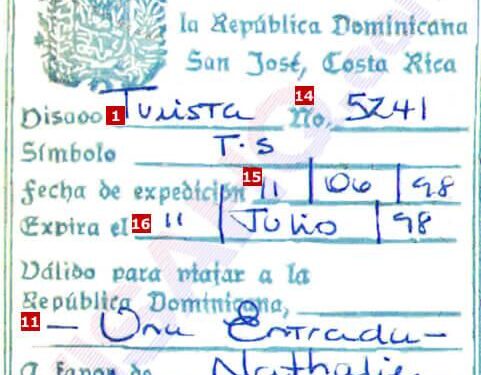 la República Dominicana
San José, Costa Rica
Visado 1 Turista 14 No. 5241
Símbolo T.S
Fecha de expedición 15 11 06 98
Expira el 16 11 Julio 98
Válido para viajar a la
República Dominicana,
11 - Una Entrada -
A favor de Nathalie